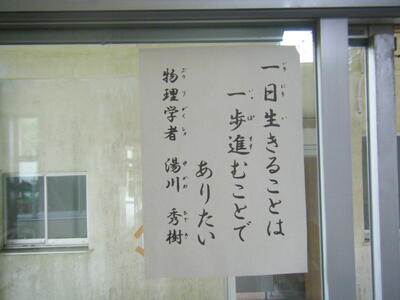 一日生きることは
一歩進むことで
ありたい
物理学者 湯川 秀樹